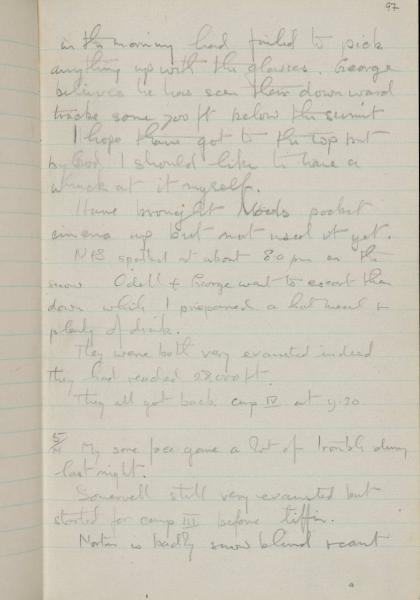 97
in the morning had failed to pick
anything up with the glasses. George
believes he has seen their downward
tracks some 700 ft below the summit
I hope they've got to the top but
by God I should like to have a
whack at it myself.
Have brought Noel's pocket
cinema up but not used it yet.
N & S spotted at about 8.0 pm on the
snow Odell & George went to escort them
down while I prepared a hot meal &
plenty of drink.
They were both very exausted indeed
they had reached 28,000 ft.
They all got back camp IV at 9.30
5/ My sore face gave a lot of trouble during
last night.
Somervell still very exausted but
started for camp III before tiffin.
Norton is badly snow blind & cant